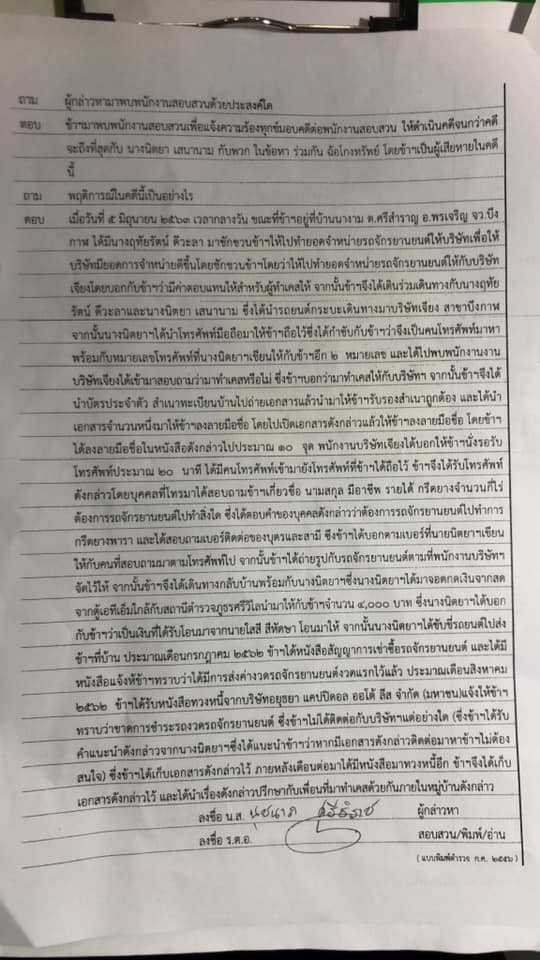 ถาม ผู้กล่าวหามาพบพนักงานสอบสวนด้วยประสงค์ใด
ตอบ ข้าฯมาพบพนักงานสอบสวนเพื่อแจ้งความร้องทุกข์มอบคดีต่อพนักงานสอบสวน ให้ดำเนินคดีจนกว่าคดี
จะถึงที่สุดกับ นางนิตยา เสนานาม กับพวก ในข้อหา ร่วมกัน ฉ้อโกงทรัพย์ โดยข้าฯเป็นผู้เสียหายในคดี
นี้
ถาม พฤติการณ์ในคดีนี้เป็นอย่างไร
ตอบ เมื่อวันที่ ๕ มิถุนายน ๒๕๖๓ เวลากลางวัน ขณะที่ข้าฯอยู่ที่บ้านนางาม ต.ศรีสำราญ อ.พรเจริญ จว.บึง
กาฬ ได้มีนางฤทัยรัตน์ ดีวะลา มาชักชวนข้าฯให้ไปทำยอดจำหน่ายรถจักรยานยนต์ให้บริษัทเพื่อให้
บริษัทมียอดการจำหน่ายดีขึ้นโดยชักชวนข้าฯโดยว่าให้ไปทำยอดจำหน่ายรถจักรยานยนต์ให้กับบริษัท
เจียงโดยบอกกับข้าฯว่ามีค่าตอบแทนให้สำหรับผู้ทำเคสให้ จากนั้นข้าฯจึงได้เดินร่วมเดินทางกับนางฤทัย
รัตน์ ดีวะลาและนางนิตยา เสนานาม ซึ่งได้นำรถยนต์กระบะเดินทางมาบริษัทเจียง สาขาบึงกาฬ
จากนั้นนางนิตยาฯได้นำโทรศัพท์มือถือมาให้ข้าฯถือไว้ซึ่งได้กำชับกับข้าฯว่าจึงเป็นคนโทรศัพท์มาหา
พร้อมกับหมายเลขโทรศัพท์ที่นางนิตยาฯเขียนให้กับข้าฯอีก ๒ หมายเลข และได้ไปพบพนักงานงาน
บริษัทเจียงได้เข้ามาสอบถามว่ามาทำเคสหรือไม่ ซึ่งข้าฯบอกว่ามาทำเคสให้กับบริษัทฯ จากนั้นข้าฯจึงได้
นำบัตรประจำตัว สำเนาทะเบียนบ้านไปถ่ายเอกสารแล้วนำมาให้ข้าฯรับรองสำเนาถูกต้อง และได้นำ
เอกสารจำนวนหนึ่งมาให้ข้าฯลงลายมือชื่อ โดยไปเปิดเอกสารดังกล่าวแล้วให้ข้าฯลงลายมือชื่อ โดยข้าฯ
ได้ลงลายมือชื่อในหนังสือดังกล่าวไปประมาณ ๑๐ จุด พนักงานบริษัทเจียงได้บอกให้ข้าฯนั่งรอรับ
โทรศัพท์ประมาณ ๒๐ นาที ได้มีคนโทรศัพท์เข้ามายังโทรศัพท์ที่ข้าฯได้ถือไว้ ข้าฯจึงได้รับโทรศัพท์
ดังกล่าวโดยบุคคลที่โทรมาได้สอบถามข้าฯเกี่ยวชื่อ นามสกุล มีอาชีพ รายได้ กรีดยางจำนวนกี่ไร่
ต้องการรถจักรยานยนต์ไปทำสิ่งใด ซึ่งได้ตอบคำของบุคคลดังกล่าวว่าต้องการรถจักรยานยนต์ไปทำการ
กรีดยางพารา และได้สอบถามเบอร์ติดต่อของบุตรและสามี ซึ่งข้าฯได้บอกตามเบอร์ที่นายนิตยาฯเขียน
ให้กับคนที่สอบถามมาตามโทรศัพท์ไป จากนั้นข้าฯได้ถ่ายรูปกับรถจักรยานยนต์ตามที่พนักงานบริษัทฯ
จัดไว้ให้ จากนั้นข้าฯจึงได้เดินทางกลับบ้านพร้อมกับนางนิตยาฯซึ่งนางนิตยาฯได้มาจอดกดเงินจากสด
จากตู้เอทีเอ็มใกล้กับสถานีตำรวจภูธรศรีวิไลนำมาให้กับข้าฯจำนวน ๔,๐๐๐ บาท ซึ่งนางนิตยาฯได้บอก
กับข้าฯว่าเป็นเงินที่ได้รับโอนมาจากนายไสสี สีหัดษา โอนมาให้ จากนั้นนางนิตยาฯได้ขับขี่รถยนต์ไปส่ง
ข้าฯที่บ้าน ประมาณเดือนกรกฎาคม ๒๕๖๒ ข้าฯได้หนังสือสัญญาการเช่าซื้อรถจักรยานยนต์ และได้มี
หนังสือแจ้งให้ข้าฯทราบว่าได้มีการส่งค่างวดรถจักรยานยนต์งวดแรกไว้แล้ว ประมาณเดือนสิงหาคม
๒๕๖๒ ข้าฯได้รับหนังสือทวงหนี้จากบริษัทอยุธยา แคปปิตอล ออโต้ ลีส จำกัด (มหาชน)แจ้งให้ข้าฯ
ทราบว่าขาดการชำระรถงวดรถจักรยานยนต์ ซึ่งข้าฯไม่ได้ติดต่อกับบริษัทฯแต่อย่างใด (ซึ่งข้าฯได้รับ
คำแนะนำดังกล่าวจากนางนิตยาฯซึ่งได้แนะนำข้าฯว่าหากมีเอกสารดังกล่าวติดต่อมาหาข้าฯไม่ต้อง
สนใจ) ซึ่งข้าฯได้เก็บเอกสารดังกล่าวไว้ ภายหลังเดือนต่อมาได้มีหนังสือมาทวงหนี้อีก ข้าฯจึงได้เก็บ
เอกสารดังกล่าวไว้ และได้นำเรื่องดังกล่าวปรึกษากับเพื่อนที่มาทำเคสด้วยกันภายในหมู่บ้านดังกล่าว
ลงชื่อ น.ส. ผู้กล่าวหา
ลงชื่อ ร.ต.อ. สอบสวน/พิมพ์/อ่าน
( แบบพิมพ์ตำรวจ ก.ค. ๒๕๕๖ )